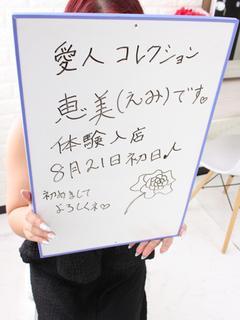 愛人 コレクション
恵美(えみ)です♡
体験入店
8月21日初日♪
初めまして
よろしくネ♡